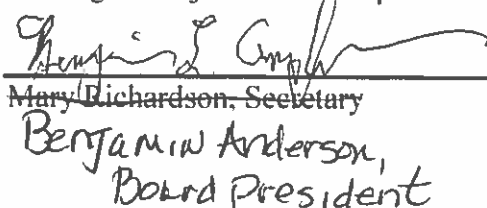 Mary Richardson, Secretary
Benjamin Anderson,
Board President